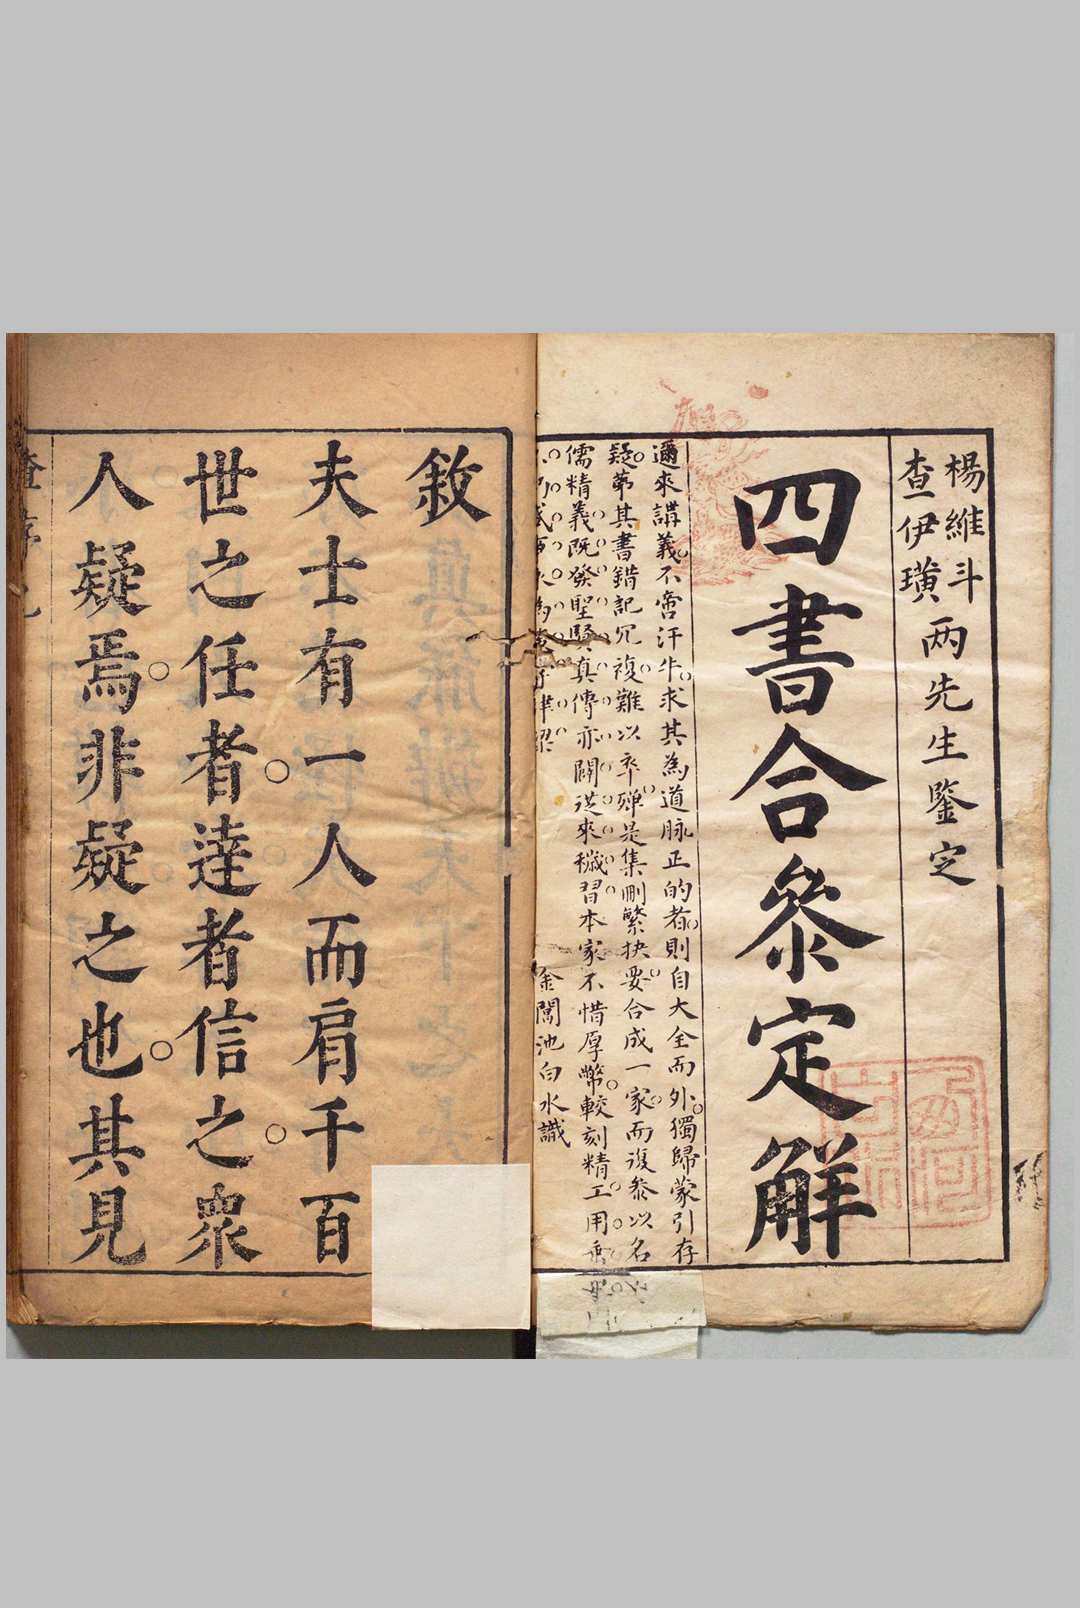 楊維斗
查伊璜
两先生鑒定
四書合參定解
邇來講義不啻汗牛求其為道脉正的者則自大全而外獨歸蒙引存
疑苐其書錯記冗複難以卒殫是集刪繁抉要合成一家而復參以名
儒精義既發聖賢真傳亦闢從來穢習本家不惜厚幣較刻精工用
金閶池白水識
敘
夫士有一人而肩千百
世之任者達者信之眾
人疑焉非疑之也其見